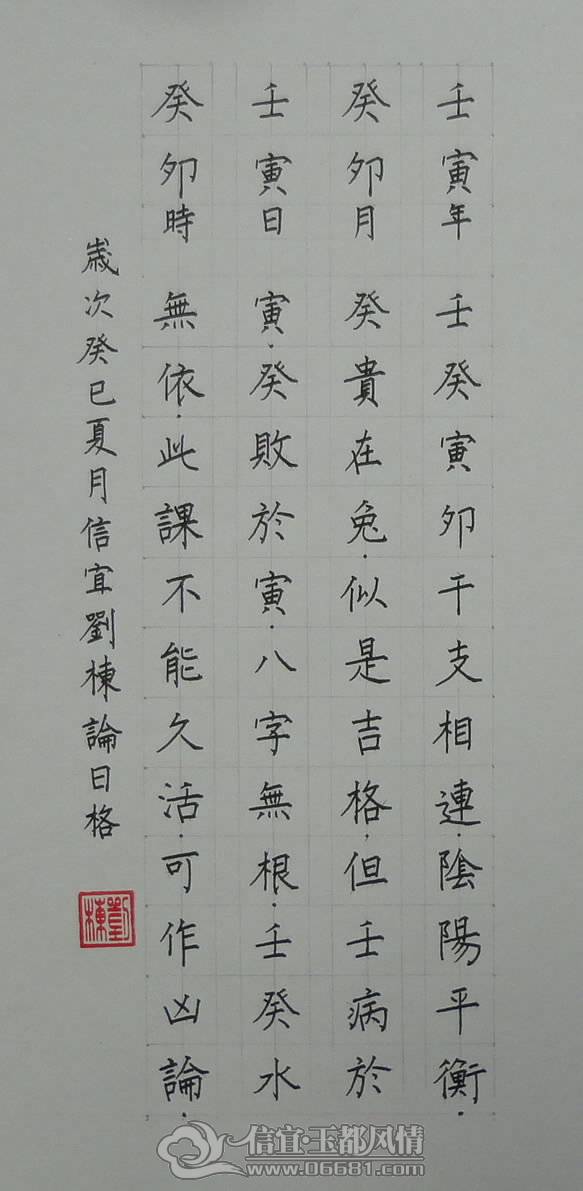 壬寅年 壬癸寅卯干支相連.陰陽平衡.
癸卯月 癸貴在兔.似是吉格.但壬病於
壬寅日 寅.癸敗於寅.八字無根.壬癸水
癸卯時 無依.此課不能久活.可作凶論.
歲次癸巳夏月信宜劉棟論日格
劉棟
信宜·玉都风情
www.06681.com